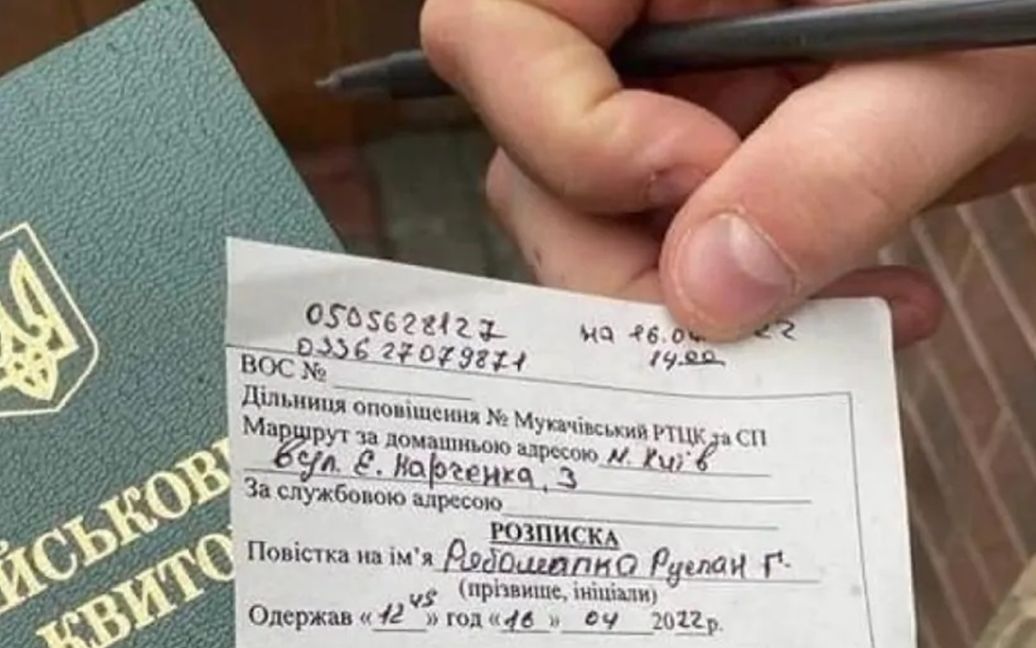 0505628127 на 16.0 22
0336 27079871 14.00
ВОС №
Дільниця оповіщення № Мукачівський РТЦК та СП
Маршрут за домашньою адресою м. Київ
вул. Є. Харченка, 3
За службовою адресою
РОЗПИСКА
Повістка на ім’я Руслан Г.
(прізвище, ініціали)
Одержав «12 45» год «16» 04 2022 р.
ЙСЬКОВ
КВИТО